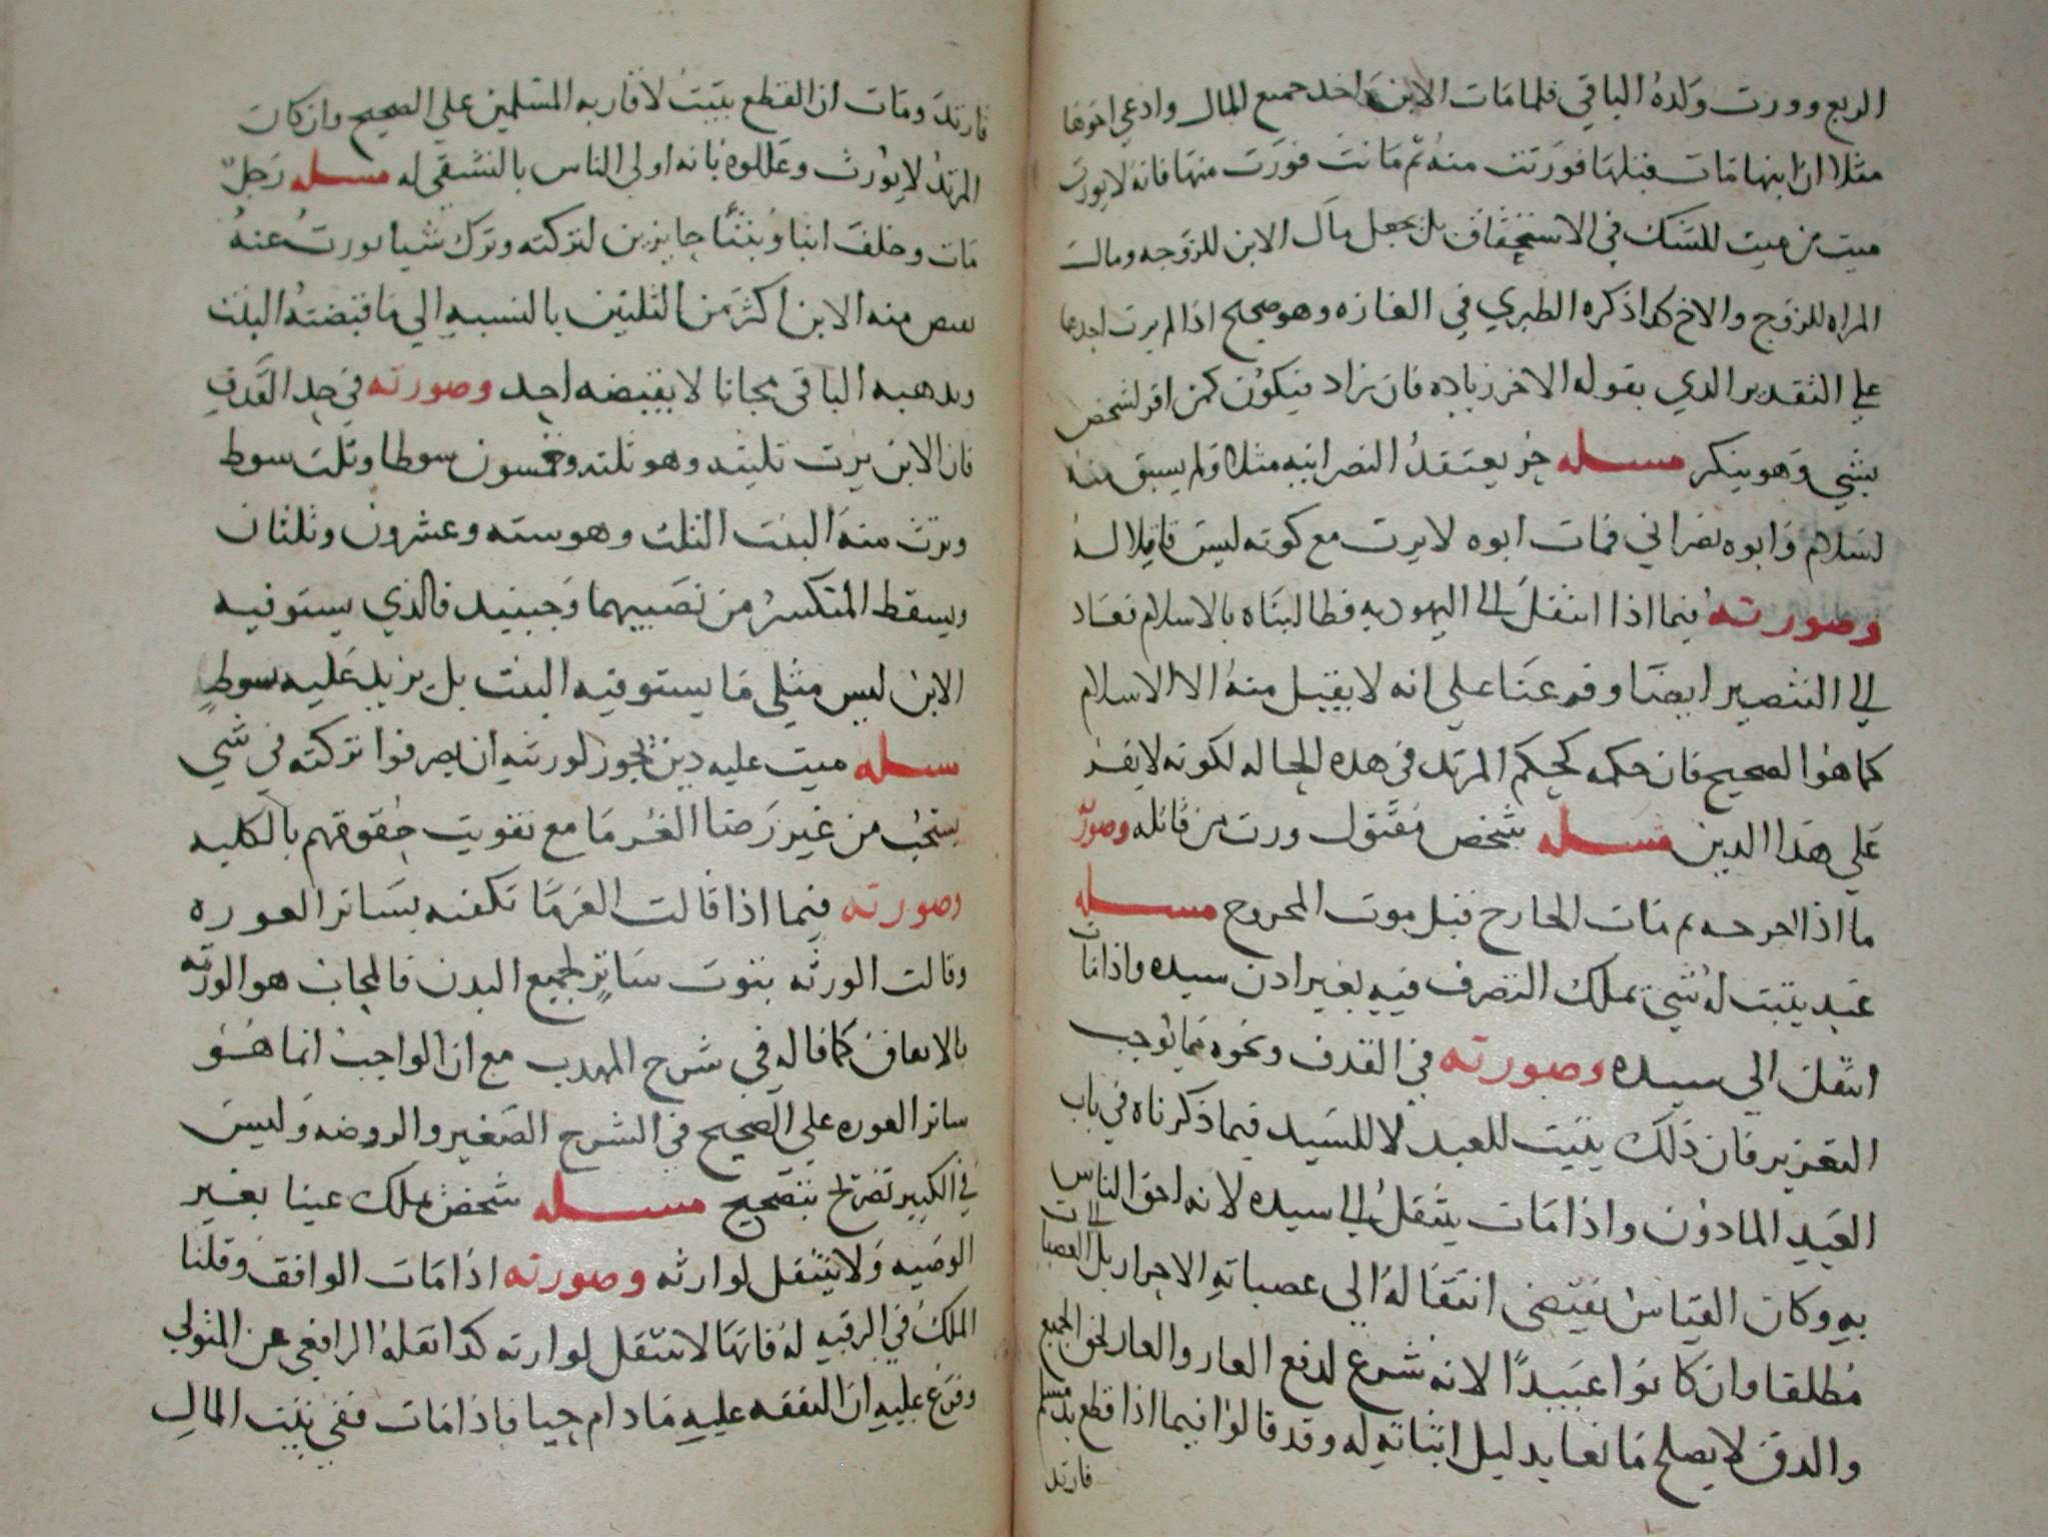 الربع وورث ولده الباقي فلما مات الابن اخذ جميع المال وادعي اخوها
مثلا ان ابنها مات قبلها فورثت منه ثم ماتت فورث منها فانه لا يورث
ميت من ميت للشك في الاستحقاق بل يجعل مال الابن للزوجه ومال
المراه للزوج والاخ كذا ذكره الطبري في وهو صحيح اذا لم يرث احدهما
علي التقدير الذي يقوله الاخر زياده فان زاد فيكون كمن اقر لشخص
بشي وهو ينكر مسله حر يعتقد النصرانيه مثلا ولم يسبق منه
لسلام وابوه نصراني فمات ابوه لا يرث مع كونه ليس قاتلا له
وصورته فيما اذا انتقل الي اليهوديه فطالبناه بالاسلام فعاد
الي التنصير ايضا وفرعنا علي انه لا يقبل منه الا الاسلام
كما هو الصحيح فان حكمه كحكم المرتد في هذه الحاله لكونه لا يقر
علي هذا الدين مسله شخص مقتول ورث من قاتله وصورته
ما اذا جرحه ثم مات الجارح قبل موت المجروح مسله
عبد يثبت له شي يملك التصرف فيه بغير اذن سيده واذا مات
انتقل الي سيده وصورته في القذف ونحوه مما يوجب
التعزير فان ذلك يثبت للعبد لا للسيد فيما ذكرناه في باب
العبد الماذون واذا مات ينتقل الي سيده لانه احق الناس
به وكان القياس يقتضي انتقاله الي عصباته الاحرار بل الي العصبات
مطلقا وان كانوا عبيدا لانه شرع لدفع العار والعار لحق الجميع
والرق لا يصلح مانعا بدليل اثباته له وقد قالوا فيما اذا قطع يد مسلم
فارتد
فارتد ومات ان القطع يثبت لاقاربه المسلمين علي الصحيح وان كان
المرتد لا يورث وعللوه بانه اولي الناس بالتشفي له مسله رجل
مات وخلف ابنا وبنتا حايزين لتركته وترك شيا يورث عنه
منه الابن اكثر من الثلثين بالنسبه الي ما قبضته البنت
ويذهب الباقي مجانا لا يقبضه احد وصورته في حد القذف
فان الابن يرث ثلثيه وهو ثلثه وخمسون سوطا وثلث سوط
وترث منه البنت الثلث وهو سته وعشرون وثلثان
ويسقط المنكسر من نصيبهما وحينيذ فالذي يستوفيه
الابن ليس مثلي ما يستوفيه البنت بل يزيد عليه سوط
مسله ميت عليه دين يجوز لورثته ان يصرفوا تركته في شي
يستحب من غير رضا الغرما مع تفويت حقوقهم بالكليه
وصورته فيما اذا قالت الغرما تكفنه بساتر العوره
وقالت الورثه بثوب ساتر لجميع البدن فالمجاب هو الورثه
بالاتفاق كما قاله في شرح المهذب مع ان الواجب انما هو
ساتر العوره علي الصحيح في الشرح الصغير والروضه وليس
في الكبير تصريح بتصحيح مسله شخص يملك عينا بغير
الوصيه ولا ينتقل لوارثه وصورته اذا مات الواقف وقلنا
الملك في الرقبه له فانها لا تنتقل لوارثه كذا نقله الرافعي عن المتولي
وفرع عليه ان النفقه عليه مادام حيا فاذا مات ففي بيت المال